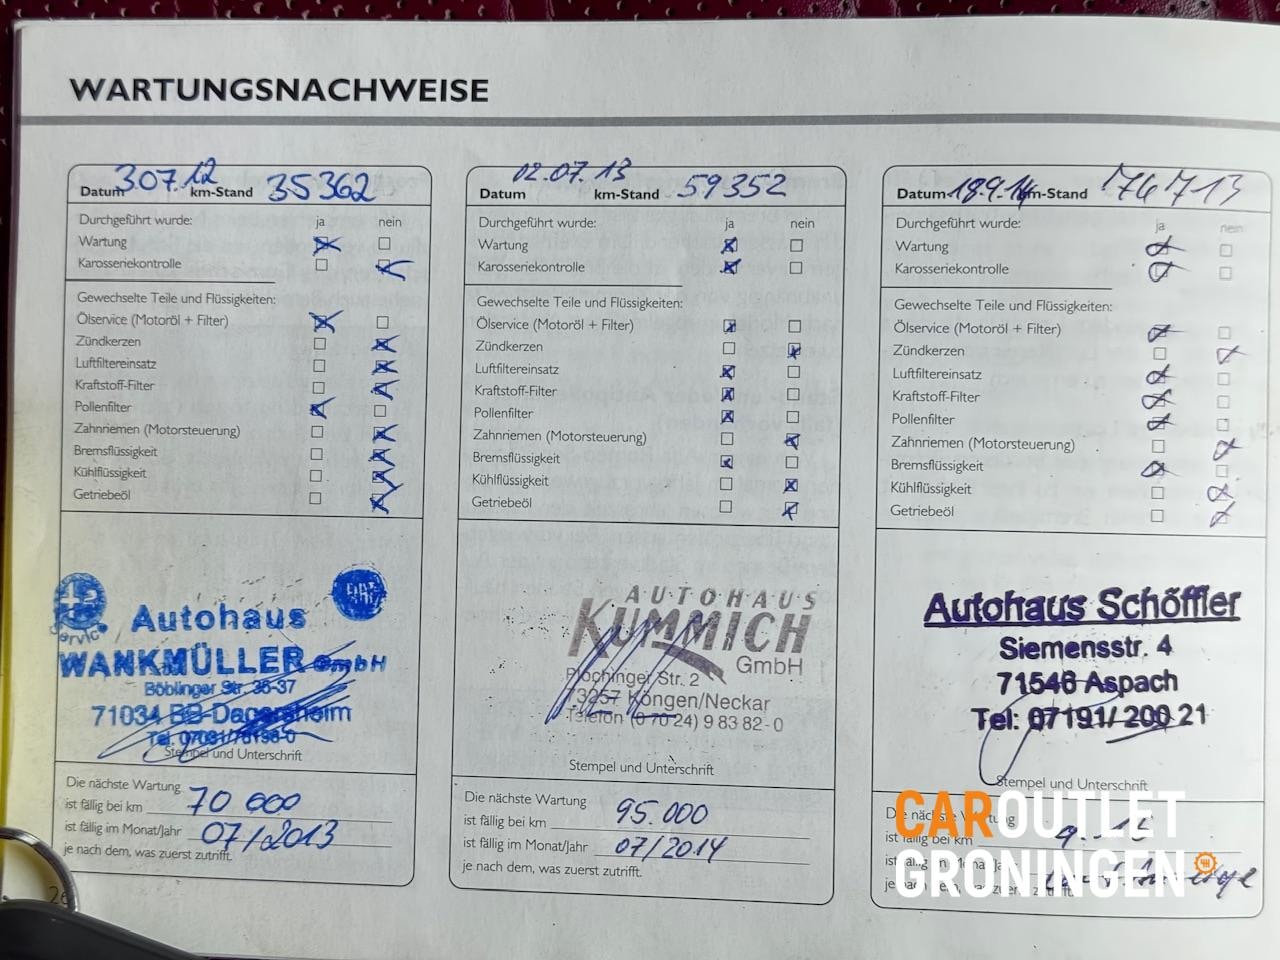 WARTUNGSNACHWEISE
Datum 3.07.12 km-Stand 35362
Durchgeführt wurde: ja nein
Wartung
Karosseriekontrolle
Gewechselte Teile und Flüssigkeiten:
Ölservice (Motoröl + Filter)
Zündkerzen
Luftfiltereinsatz
Kraftstoff-Filter
Pollenfilter
Zahnriemen (Motorsteuerung)
Bremsflüssigkeit
Kühlflüssigkeit
Getriebeöl
Autohaus
WANKMÜLLER GmbH
Böblinger Str. 35-37
71034 BB-Dagersheim
Stempel und Unterschrift
Die nächste Wartung
ist fällig bei km 70 000
ist fällig im Monat/Jahr 07/2013
je nach dem, was zuerst zutrifft.
Datum 02.07.13 km-Stand 59352
Durchgeführt wurde: ja nein
Wartung
Karosseriekontrolle
Gewechselte Teile und Flüssigkeiten:
Ölservice (Motoröl + Filter)
Zündkerzen
Luftfiltereinsatz
Kraftstoff-Filter
Pollenfilter
Zahnriemen (Motorsteuerung)
Bremsflüssigkeit
Kühlflüssigkeit
Getriebeöl
AUTOHAUS
KUMMICH
GmbH
Plochinger Str. 2
73257 Köngen/Neckar
Telefon (0 70 24) 9 83 82-0
Stempel und Unterschrift
Die nächste Wartung
ist fällig bei km 95.000
ist fällig im Monat/Jahr 07/2014
je nach dem, was zuerst zutrifft.
Datum 18.9.14 km-Stand 76713
Durchgeführt wurde: ja nein
Wartung
Karosseriekontrolle
Gewechselte Teile und Flüssigkeiten:
Ölservice (Motoröl + Filter)
Zündkerzen
Luftfiltereinsatz
Kraftstoff-Filter
Pollenfilter
Zahnriemen (Motorsteuerung)
Bremsflüssigkeit
Kühlflüssigkeit
Getriebeöl
Autohaus Schöffler
Siemensstr. 4
71546 Aspach
Tel: 07191/200 21
Stempel und Unterschrift
Die nächste Wartung
ist fällig bei km 9.15
ist fällig im Monat/Jahr
je nach dem, was zuerst zutrifft.
CAROUTLET
GRONINGEN
26